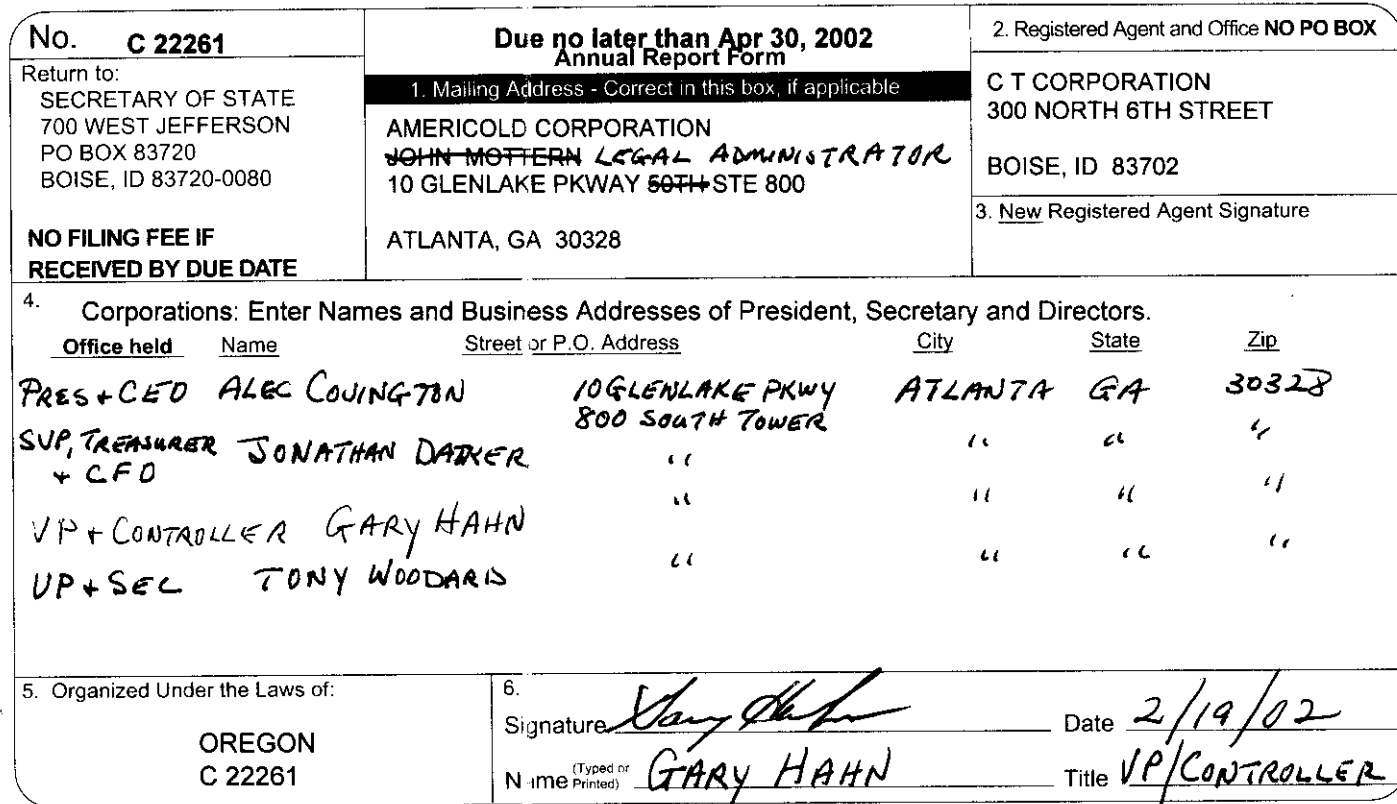 No. C 22261
Return to:
SECRETARY OF STATE
700 WEST JEFFERSON
PO BOX 83720
BOISE, ID 83720-0080
NO FILING FEE IF
RECEIVED BY DUE DATE
Due no later than Apr 30, 2002
Annual Report Form
1. Mailing Address - Correct in this box, if applicable
AMERICOLD CORPORATION
JOHN MOTTERN LEGAL ADMINISTRATOR
10 GLENLAKE PKWAY 50TH STE 800
ATLANTA, GA 30328
2. Registered Agent and Office NO PO BOX
C T CORPORATION
300 NORTH 6TH STREET
BOISE, ID 83702
3. New Registered Agent Signature
4. Corporations: Enter Names and Business Addresses of President, Secretary and Directors.
Office held Name Street or P.O. Address City State Zip
PRES + CEO ALEC COVINGTON 10 GLENLAKE PKWY ATLANTA GA 30328
800 SOUTH TOWER
SVP, TREASURER JONATHAN DAIKER " " " "
+ CFO
VP + CONTROLLER GARY HAHN " " " "
VP + SEC TONY WOODARD " " " "
5. Organized Under the Laws of:
OREGON
C 22261
6.
Signature Gary Hahn Date 2/19/02
Name (Typed or Printed) GARY HAHN Title VP/CONTROLLER